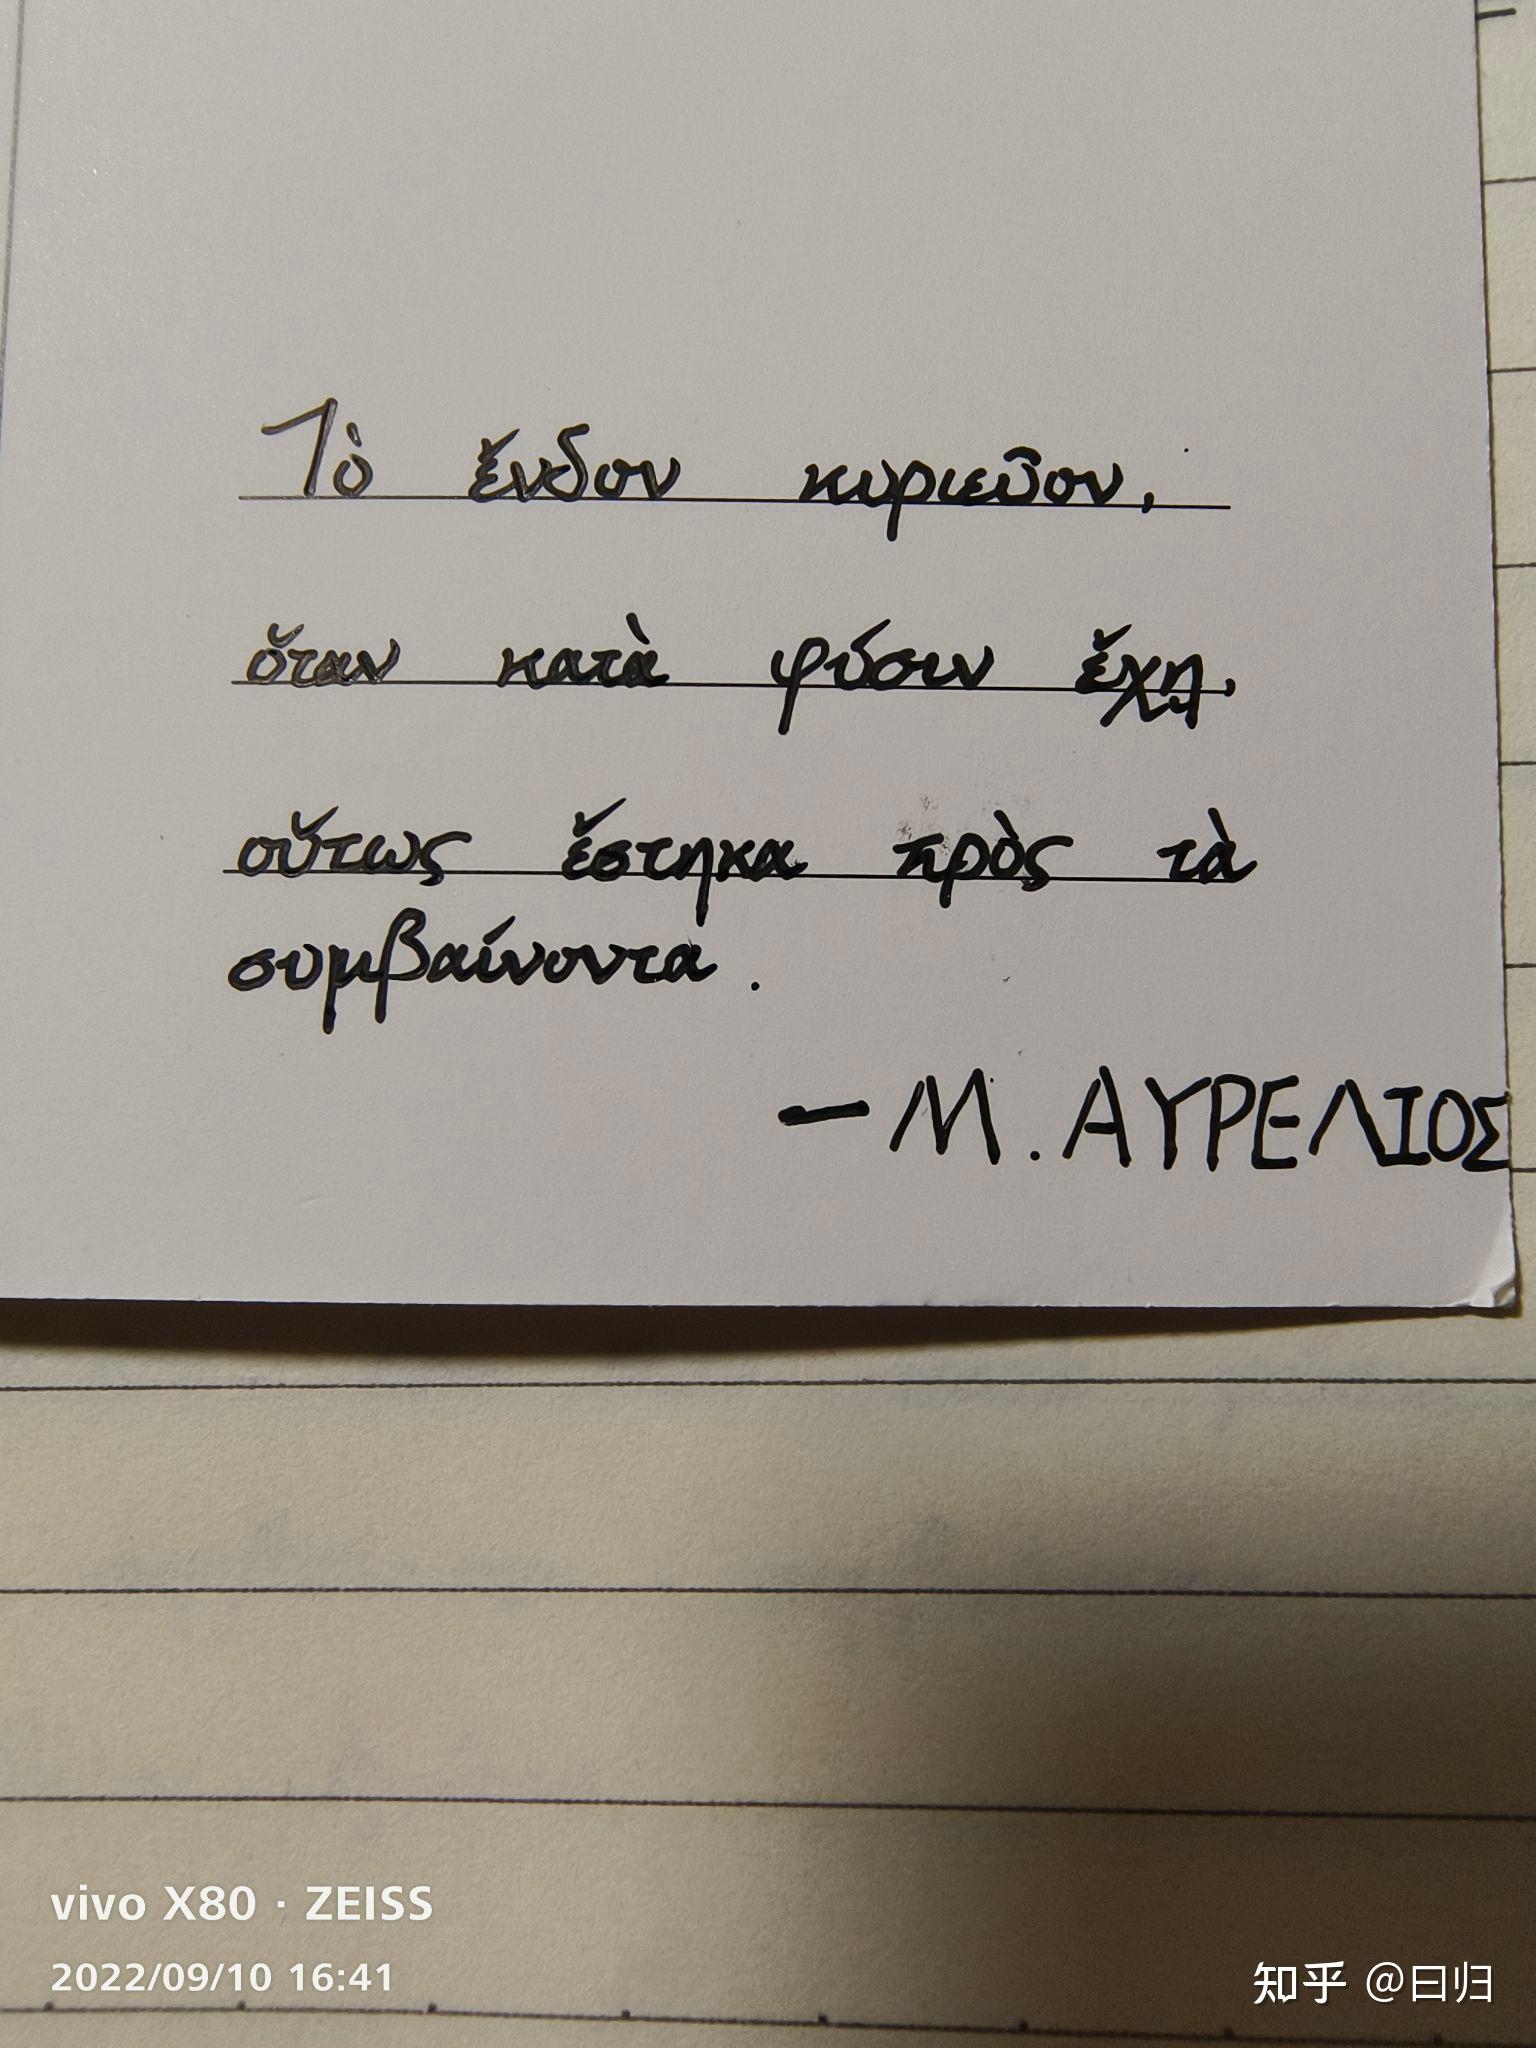 Τὸ ἔνδον κυριεῦον,
ὅταν κατὰ φύσιν ἔχῃ,
οὕτως ἕστηκα πρὸς τὰ
συμβαίνοντα.
— Μ. ΑΥΡΕΛΙΟΣ
vivo X80 · ZEISS
2022/09/10 16:41
知乎 @曰归